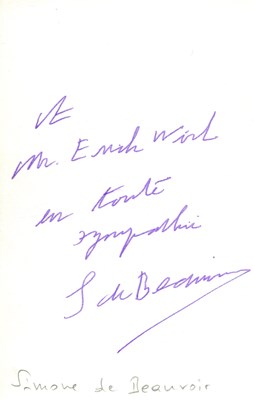 A
Mr. Erich Wirl
en toute
sympathie
S de Beauvoir
Simone de Beauvoir